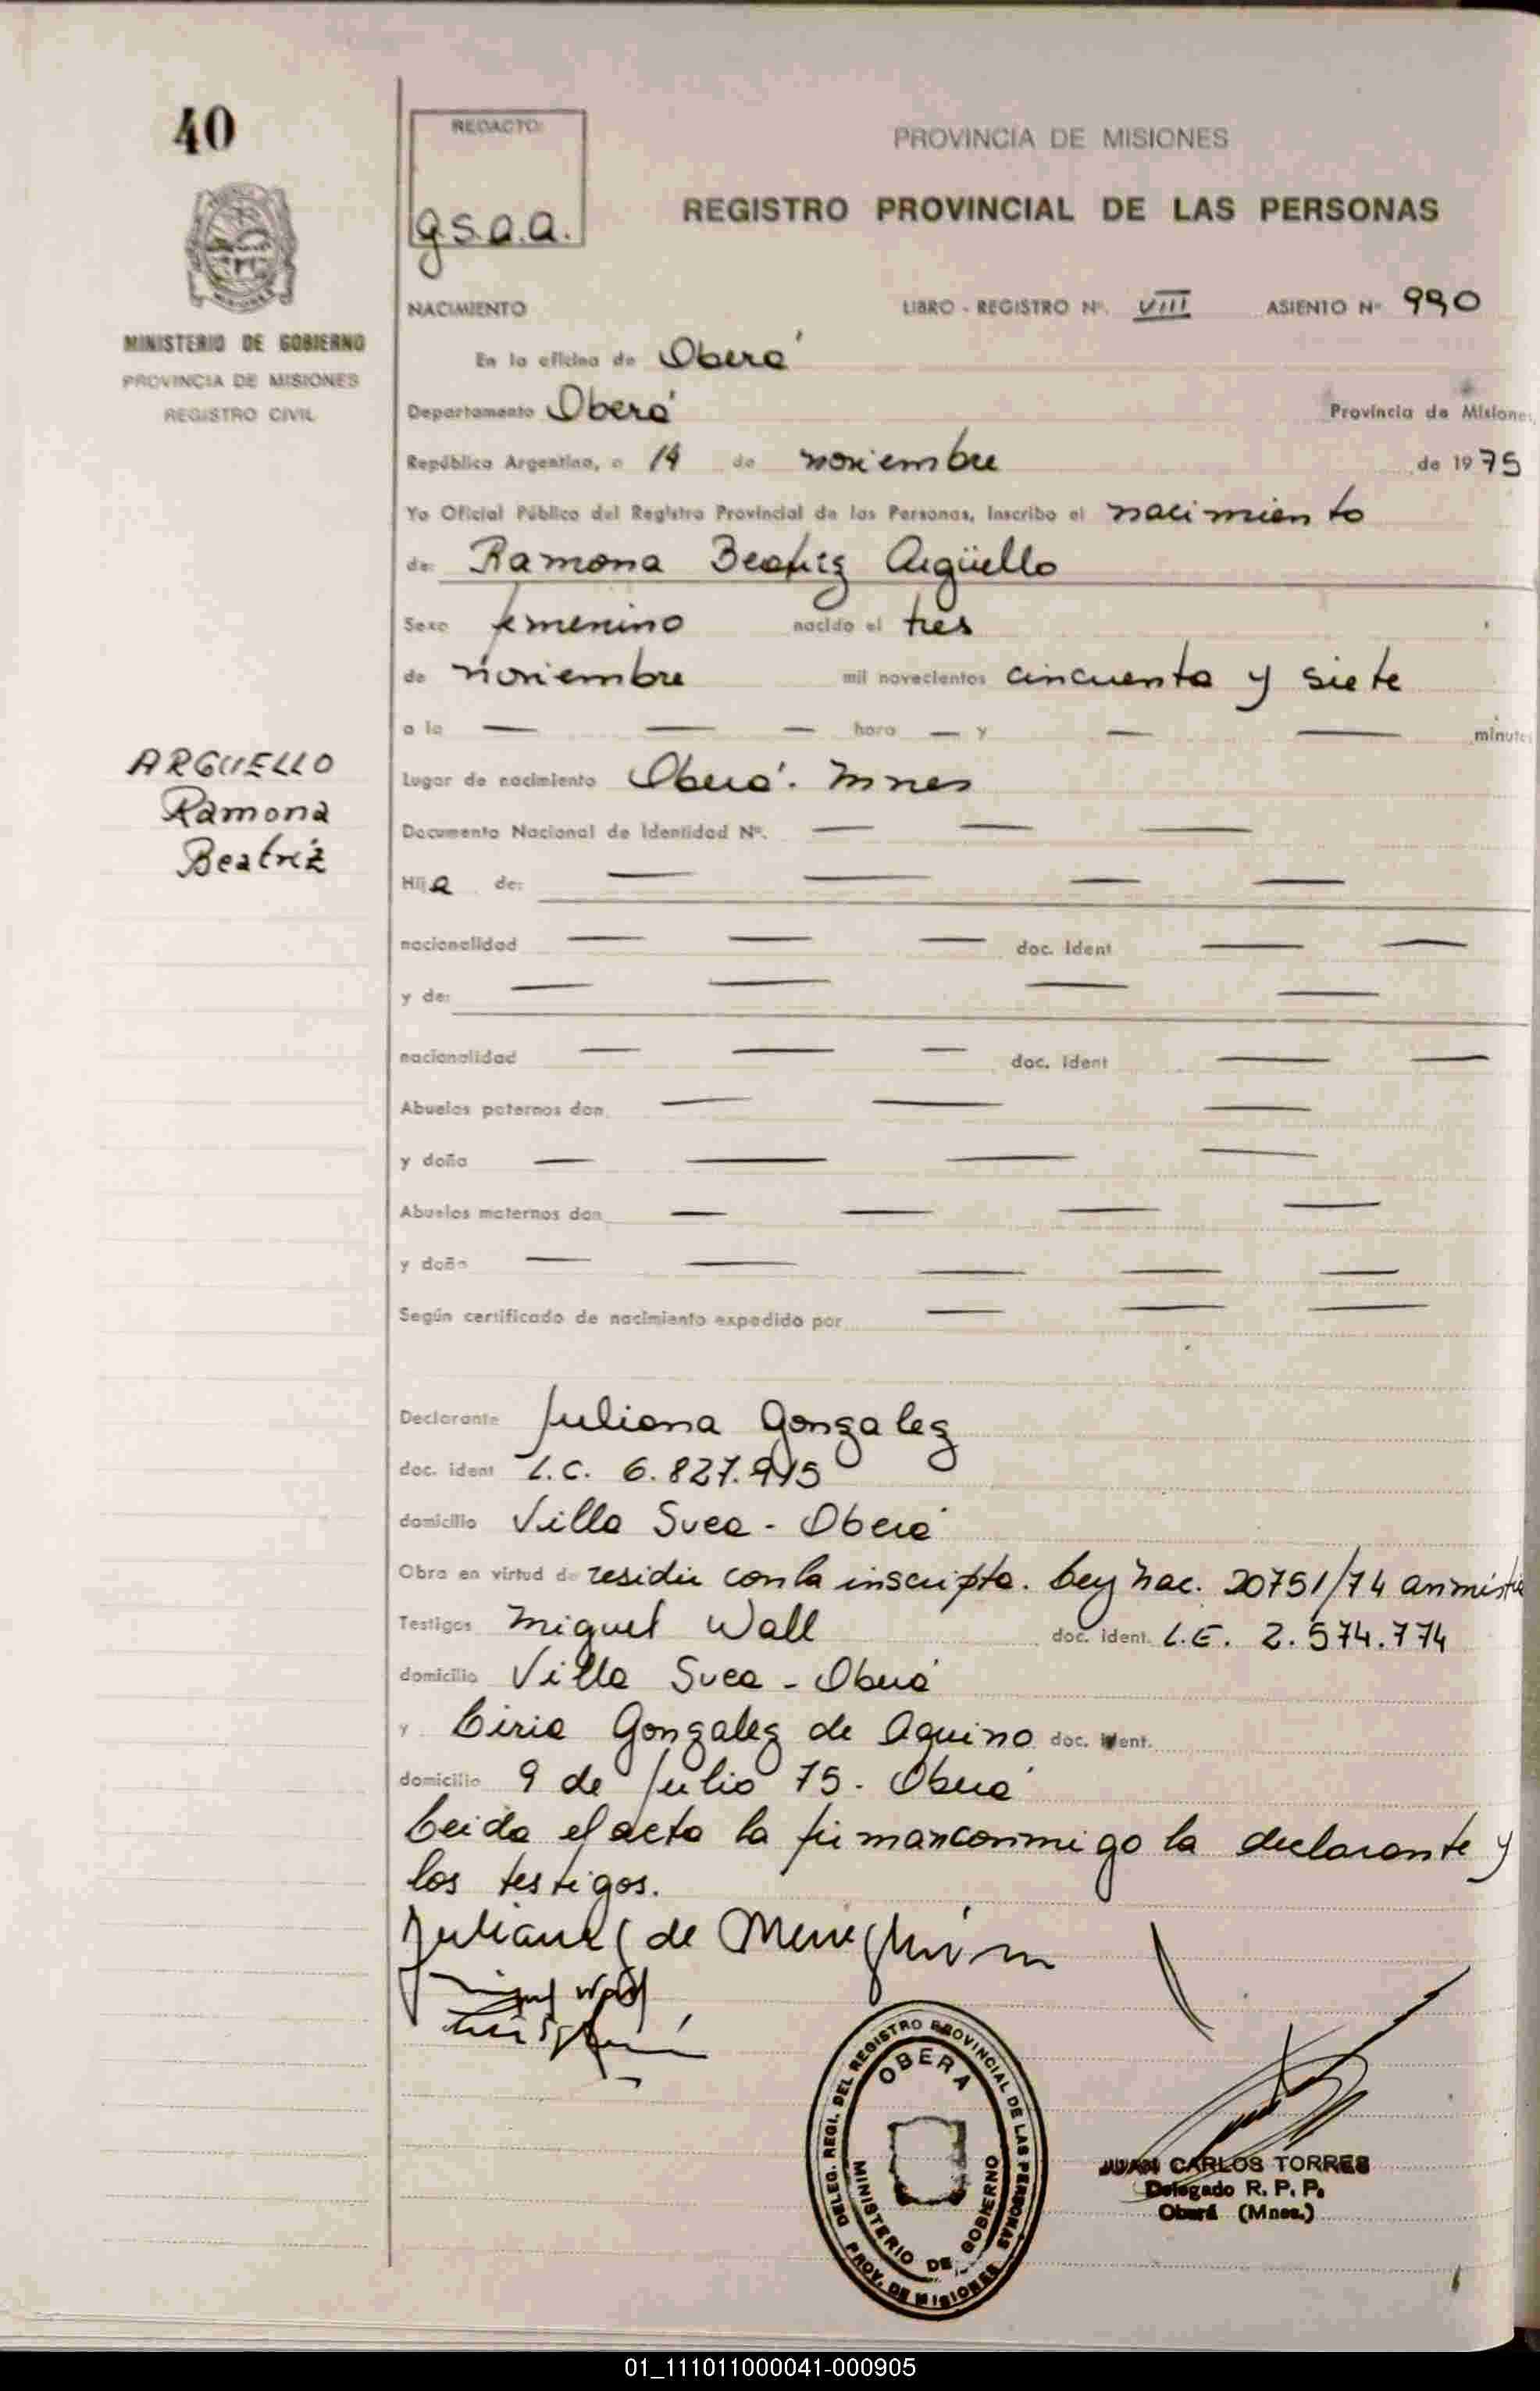 40
REDACTO:
g.s.a.a.
PROVINCIA DE MISIONES
REGISTRO PROVINCIAL DE LAS PERSONAS
MISIONES
MINISTERIO DE GOBIERNO
PROVINCIA DE MISIONES
REGISTRO CIVIL
NACIMIENTO LIBRO - REGISTRO Nº. VIII ASIENTO Nº 990
En la oficina de Oberá
Departamento Oberá Provincia de Misiones,
República Argentina, a 14 de noviembre de 1975
Yo Oficial Público del Registro Provincial de las Personas, inscribo el nacimiento
de: Ramona Beatriz Argüello
Sexo femenino nacido el tres
de noviembre mil novecientos cincuenta y siete
a la — — — hora — y — — minutos
ARGUELLO
Ramona
Beatriz
Lugar de nacimiento Oberá. Mnes
Documento Nacional de Identidad Nº. — — —
Hija de: — — — —
nacionalidad — — — doc. ident — —
y de: — — — —
nacionalidad — — — doc. ident — —
Abuelos paternos don — — —
y doña — — — —
Abuelos maternos don — — — —
y doña — — — — —
Según certificado de nacimiento expedido por — — —
Declarante Juliana Gonzalez
doc. ident L.C. 6.827.915
domicilio Villa Svea - Oberá
Obra en virtud de residir con la inscripta. Ley Nac. 20751/74 anmistia
Testigos Miguel Wall doc. ident. L.E. 2.574.774
domicilio Villa Svea - Oberá
y Liria Gonzalez de Aquino doc. ident.
domicilio 9 de Julio 75 - Oberá
Leida el acta la firman conmigo la declarante y
los testigos.
Juliana de
Wall
DELEG. REGI. DEL REGISTRO PROVINCIAL DE LAS PERSONAS
OBERA
MINISTERIO DE GOBIERNO
PROV. DE MISIONES
JUAN CARLOS TORRES
Delegado R. P. P.
Oberá (Mnes.)
01_111011000041-000905